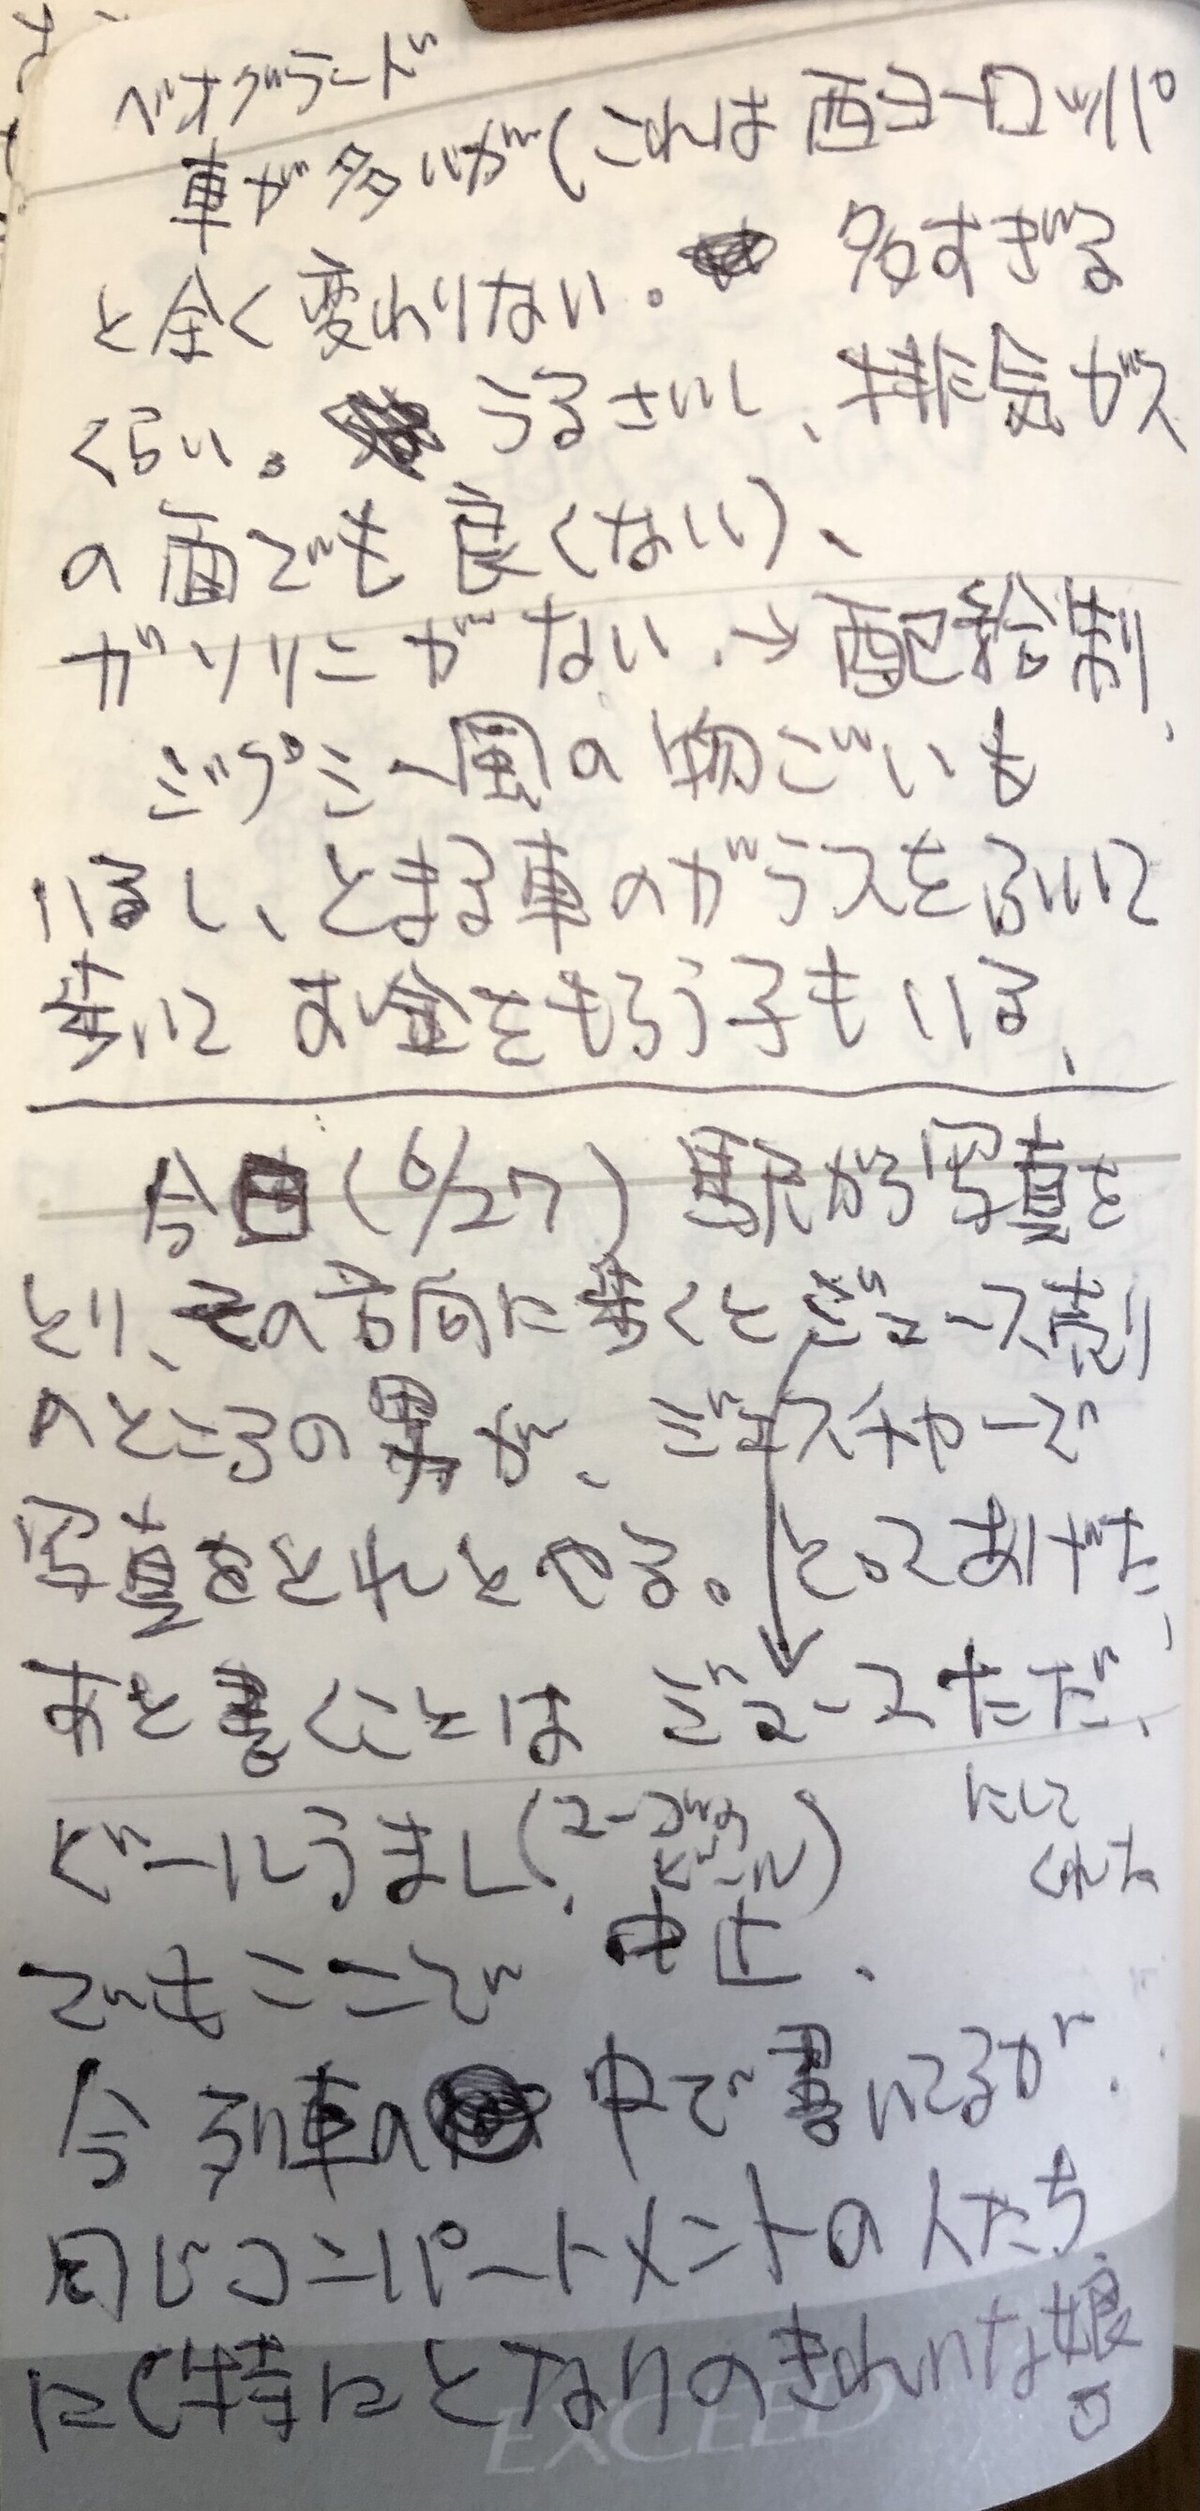 ベオグラード
車が多いが(これは西ヨーロッパ
と全く変わりない。多すぎる
くらい。うるさいし、排気ガス
の面でも良くない)、
ガソリンがない、→配給制、
ジプシー風の物ごいも
いるし、とまる車のガラスをふいて
歩いてお金をもらう子もいる、
今日(6/27)駅から写真を
とり、その方向に歩くとジュース売り
のところの男が、ジェスチャーで
写真をとれとやる。とってあげた、
あと書くことはジュースただ、
にして
くれた
ビールうまし(ユーゴの
ビール)
でもここで中止、
今列車の中で書いてるが、
同じコンパートメントの人たち
に(特にとなりのきれいな娘
の
EXCEED